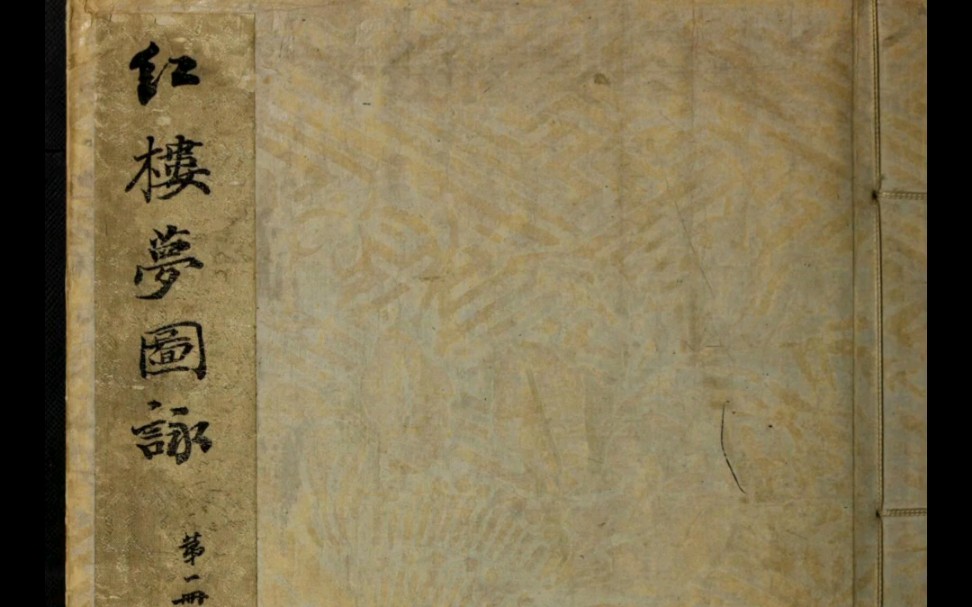 紅樓夢圖詠
第一冊